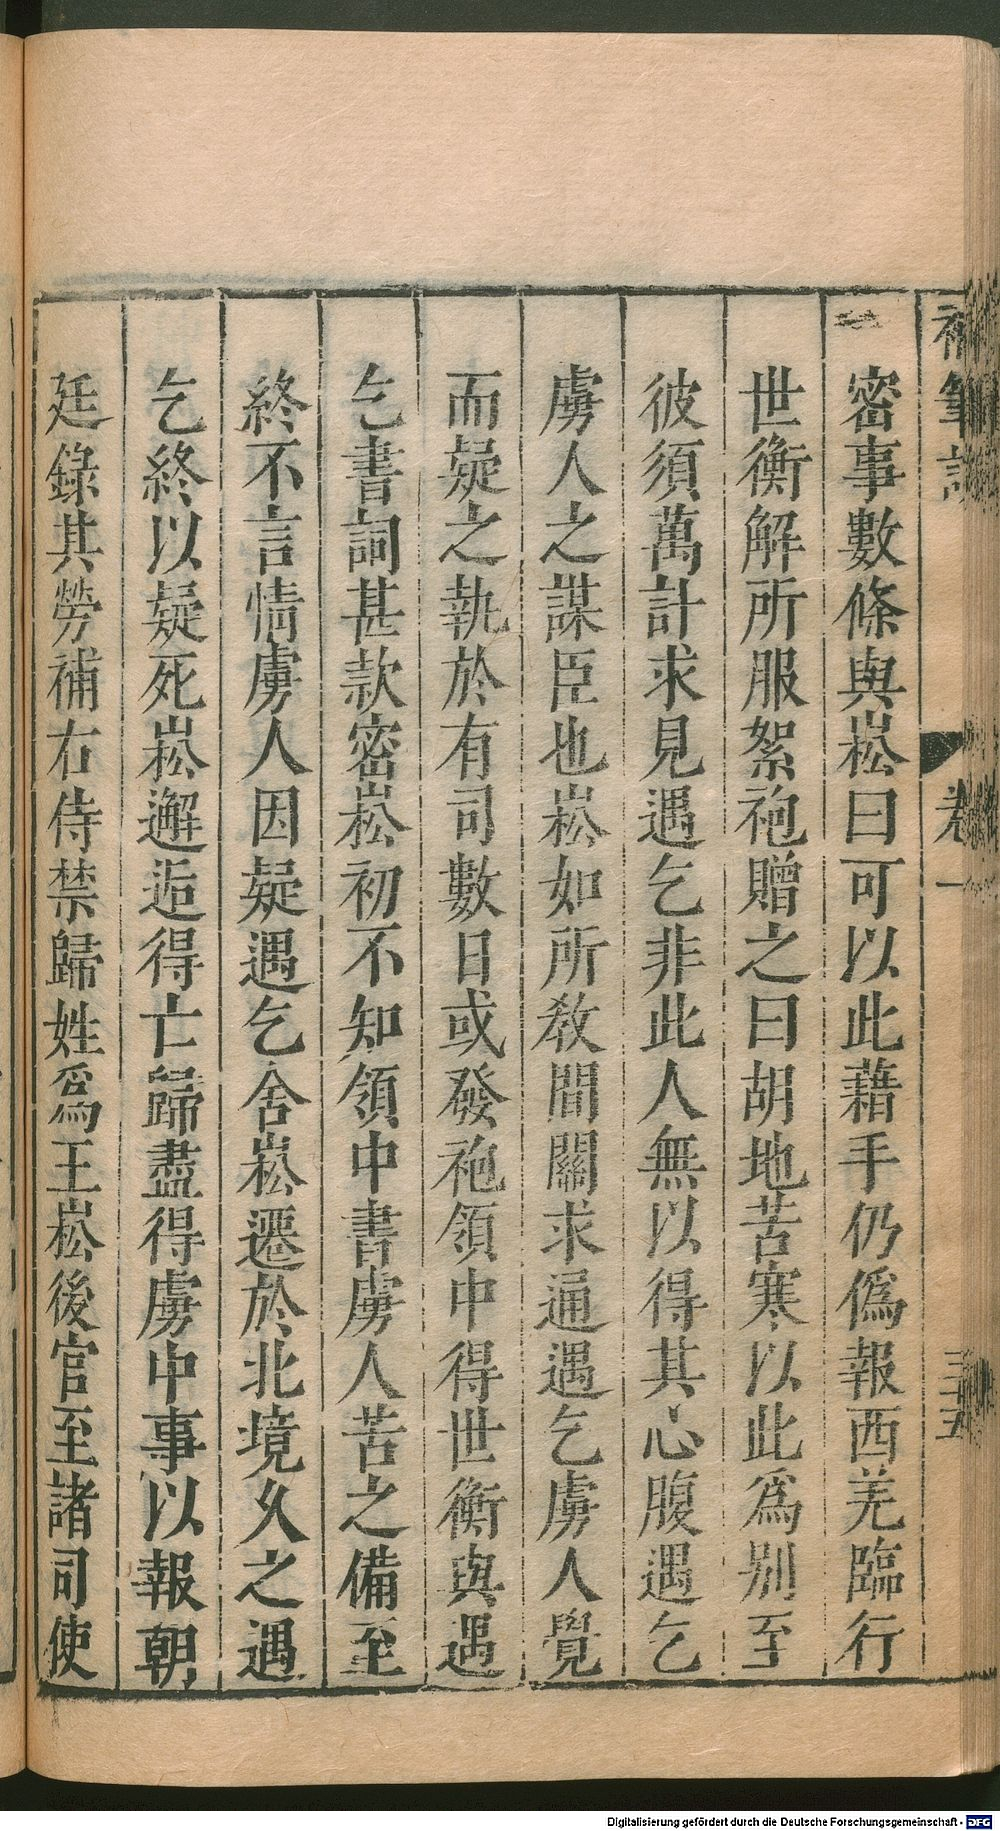 補筆談
卷一
三五
密事數條與崧曰可以此藉手仍僞報西羌臨行
世衡解所服絮袍贈之曰胡地苦寒以此爲别至
彼須萬計求見遇乞非此人無以得其心腹遇乞
虜人之謀臣也崧如所教間關求通遇乞虜人覺
而疑之執於有司數日或發袍領中得世衡與遇
乞書詞甚款密崧初不知領中書虜人苦之備至
終不言情虜人因疑遇乞舍崧遷於北境久之遇
乞終以疑死崧邂逅得亡歸盡得虜中事以報朝
廷錄其勞補右侍禁歸姓爲王崧後官至諸司使
Digitalisierung gefördert durch die Deutsche Forschungsgemeinschaft - DFG